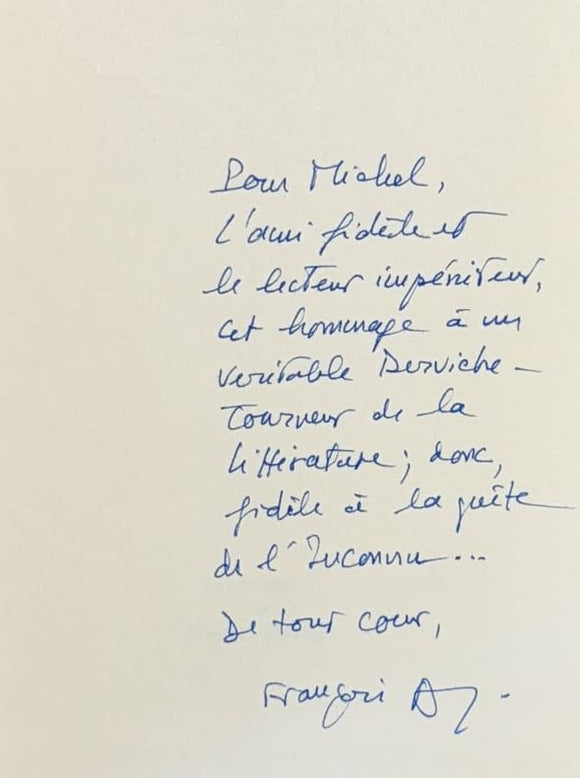 Pour Michel,
l'ami fidèle et
le lecteur impénitent,
cet hommage à un
véritable Derviche-
Tourneur de la
littérature ; donc,
fidèle à la quête
de l'Inconnu...
De tout cœur,
François